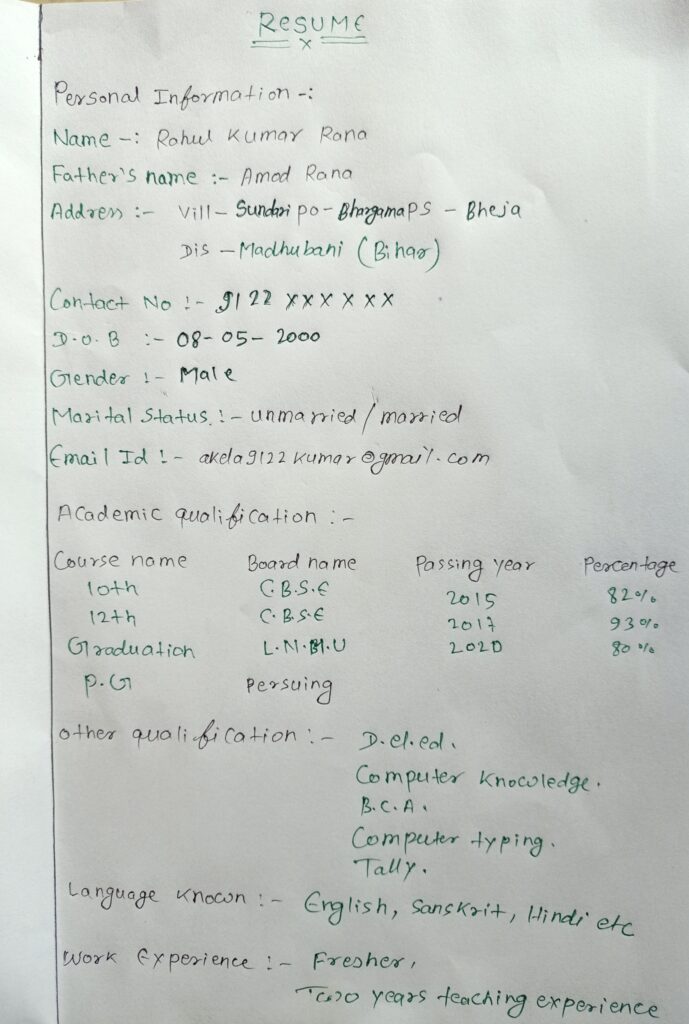 ReSUME
x
Personal Information -:
Name -: Rahul Kumar Rana
Father's name :- Amod Rana
Address :- Vill - Sundari po - Bhargama PS - Bheja
Dis - Madhubani (Bihar)
Contact No :- 9122 xxxxxx
D.O.B :- 08-05-2000
Gender :- Male
Marital Status :- unmarried / married
Email Id :- akela9122kumar@gmail.com
Academic qualification :-
Course name Board name Passing year Percentage
10th C.B.S.E 2015 82%
12th C.B.S.E 2017 93%
Graduation L.N.M.U 2020 80%
P.G Persuing
other qualification :- D.el.ed.
Computer knowledge.
B.C.A.
Computer typing.
Tally.
Language known :- English, Sanskrit, Hindi etc
Work Experience :- Fresher,
Two years teaching experience